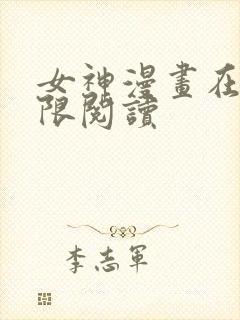 女神漫畫在
限閱讀
李志軍